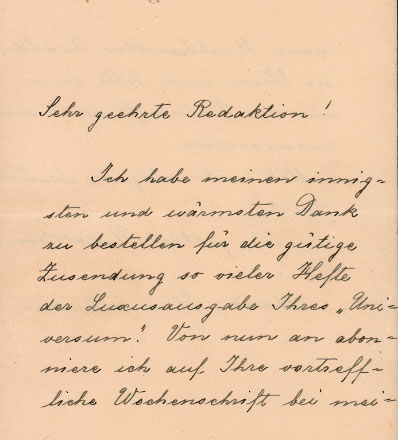 Sehr geehrte Redaktion!
Ich habe meinen innig-
sten und wärmsten Dank
zu bestellen für die gütige
Zusendung so vieler Hefte
der Luxusausgabe Ihres „Uni-
versum". Von nun an abon-
niere ich auf Ihre vortreff-
liche Wochenschrift bei mei-